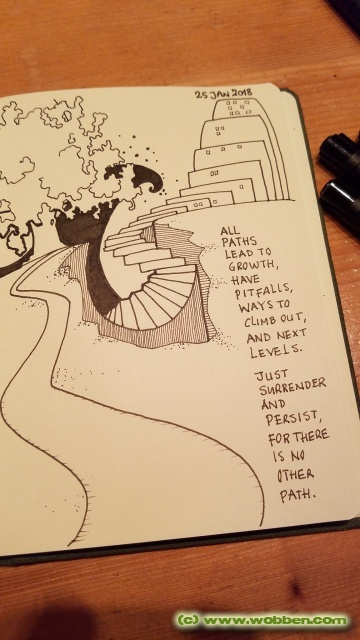 25 JAN 2018
ALL
PATHS
LEAD TO
GROWTH,
HAVE
PITFALLS,
WAYS TO
CLIMB OUT,
AND NEXT
LEVELS.
JUST
SURRENDER
AND
PERSIST,
FOR THERE
IS NO
OTHER
PATH.
(c) www.wobben.com